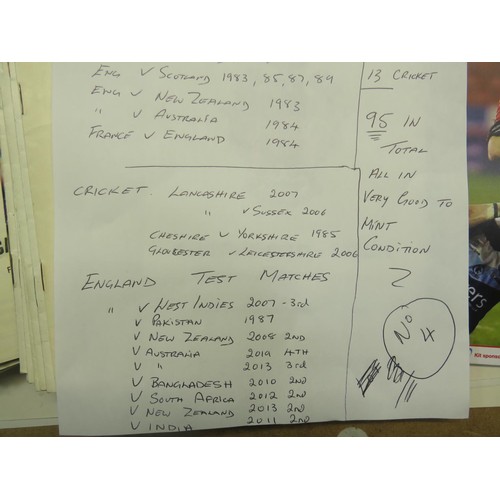 ENG V SCOTLAND 1983, 85, 87, 89
ENG V NEW ZEALAND 1983
" V AUSTRALIA 1984
FRANCE V ENGLAND 1984
CRICKET. LANCASHIRE 2007
" V SUSSEX 2006
CHESHIRE V YORKSHIRE 1985
GLOUCESTER V LEICESTERSHIRE 2006
ENGLAND TEST MATCHES
" V WEST INDIES 2007 - 3rd
V PAKISTAN 1987
V NEW ZEALAND 2008 2ND
V AUSTRALIA 2019 4TH
V " 2013 3rd
V BANGLADESH 2010 2nd
V SOUTH AFRICA 2012 2nd
V NEW ZEALAND 2013 2nd
V INDIA 2011 2nd
13 CRICKET
95 IN
TOTAL
ALL IN
VERY GOOD TO
MINT
CONDITION
No 4
ers
Kit sponso